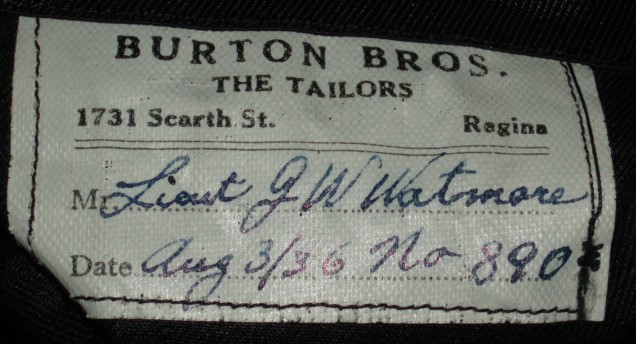 BURTON BROS.
THE TAILORS
1731 Scarth St. Regina
Mr Lieut G W Watmore
Date Aug 3/36 No 890